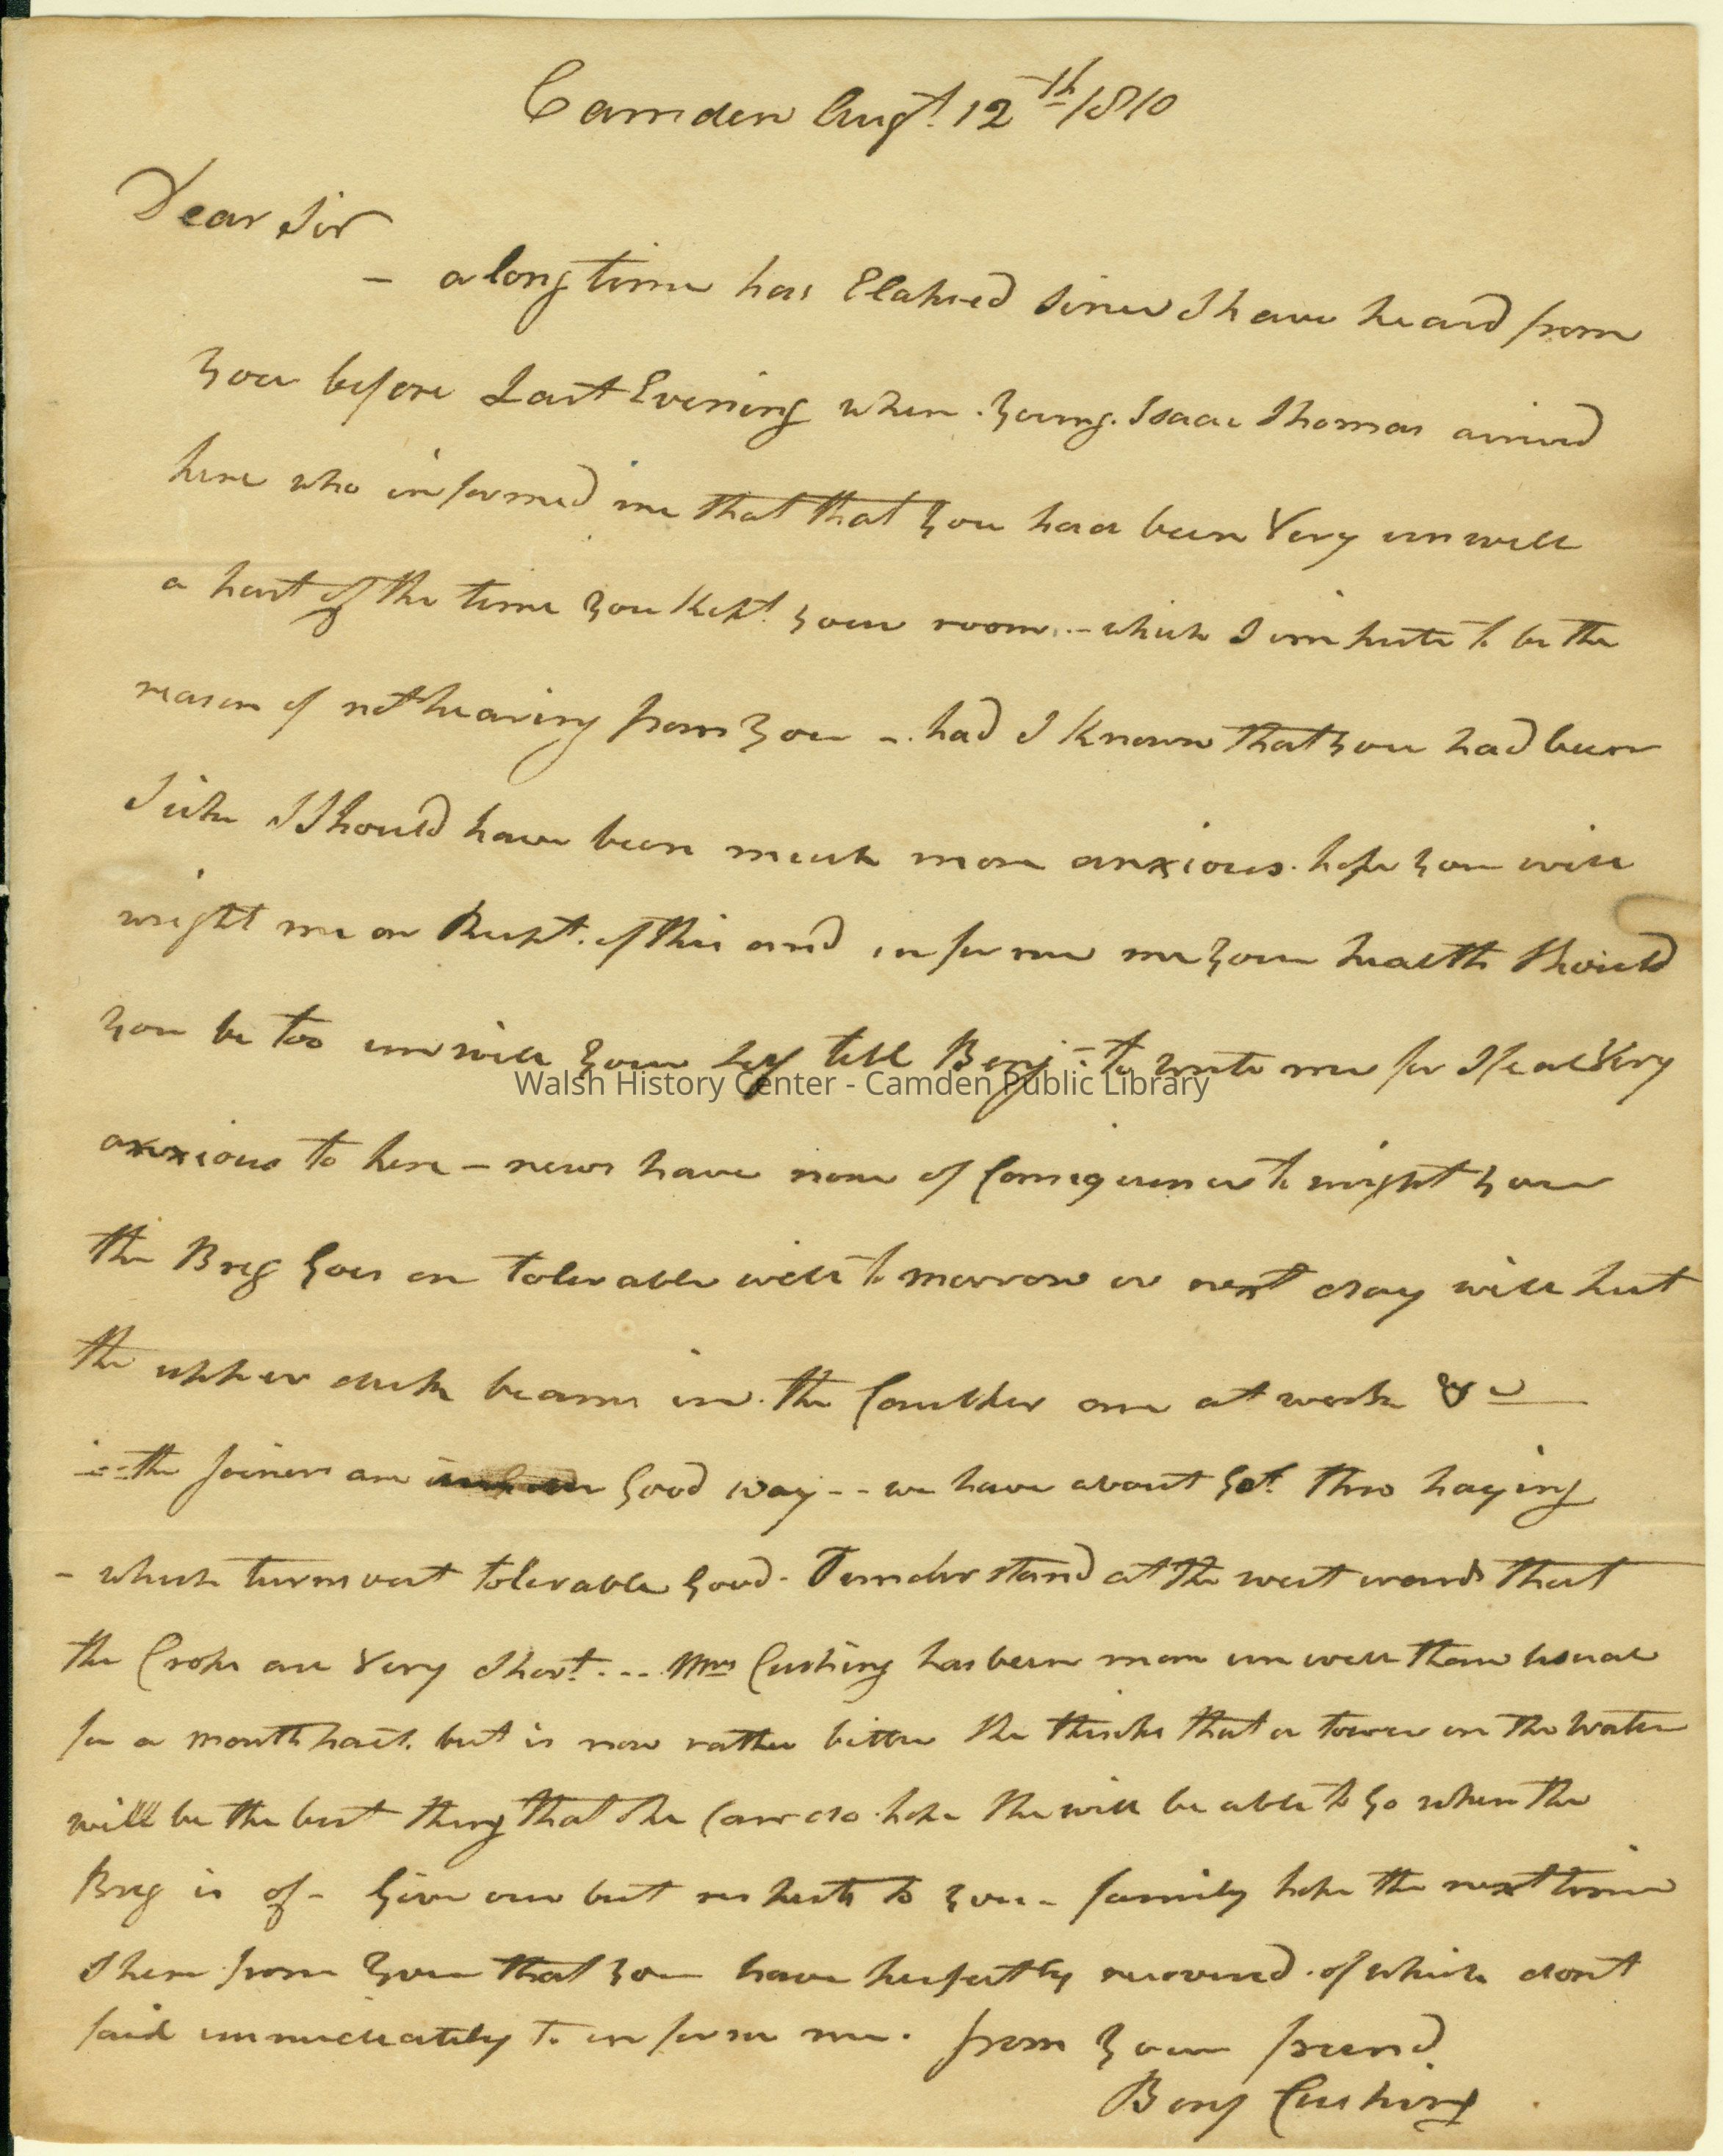 Camden Augt. 12th 1810
Dear Sir
– a long time has Elapsed Since I have heard from
you before Last Evening when young Isaac Thomas arrived
here who informed me that that you had been Very unwell
a part of the time you Kept your room – which I impute to be the
reason of not hearing from you – had I known that you had been
Sick I Should have been much more anxious. hope you will
wright me on Recept. of this and inform me your health Should
you be too unwell your Self tell Benj to write me for I feal Very
Walsh History Center - Camden Public Library
anxious to here – news have none of Consequence to wright you
the Breg goes on tolerable well to morrow or next day will put
the upper deck beams in. the Caulker are at work &c
the Joiners are good way -- we have about got thro haying
– which turns out tolerable good. I understand at the west wards that
the Crops are Very Short. ... Mrs Cushing has been more unwell than Usual
for a month past. but is now rather better She thinks that a tower on the Water
will be the best thing that She Can do. hope She will be able to go when the
Breg is of – Give our best respects to your – family hope the next time
I here from you that you have perfectly recovered. of which dont
faid immediately to inform me. from your friend
Benj Cushing